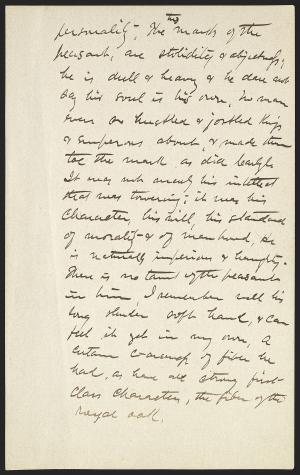 personality. The two marks of the
peasant, are stolidity & abjectness;
he is dull & heavy & he dare not
say his soul is his own. No man
ever so hustled & jostled kings
& emperors about, & made them
toe the mark as did Carlyle.
It was not merely his intellect
that was towering; it was his
Character, his will, his standard
of morality & of manhood. He
is naturally imperious & haughty.
There is no taint of the peasant
in him, I remember well his
long slender soft hand, & can
feel it yet in my own. A
certain coarseness of fibre he
had, as have all strong first-
class characters, the fibre of the
royal oak.